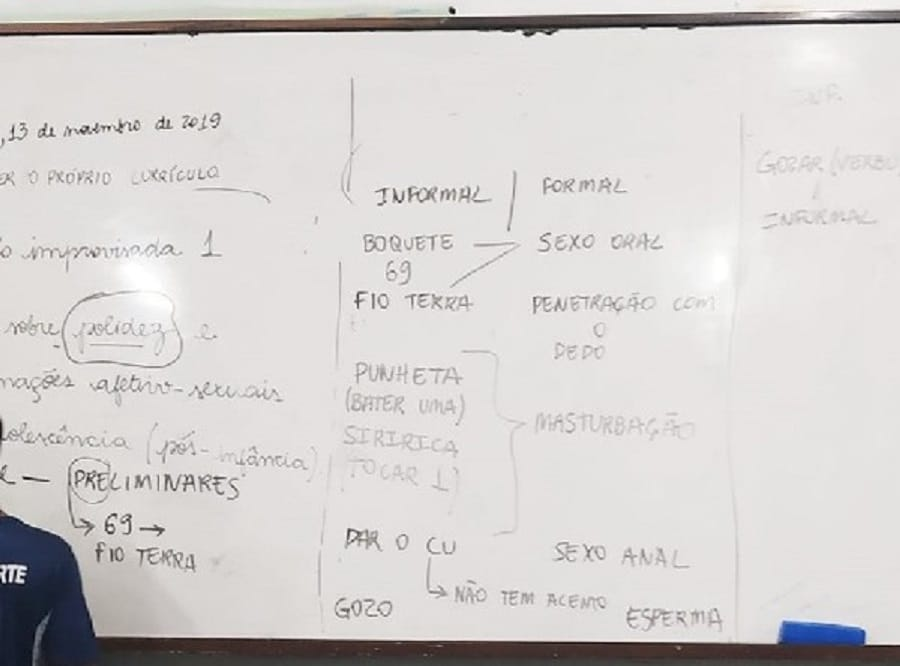 , 13 de novembro de 2019
ER O PRÓPRIO CURRÍCULO
o improvisada 1
sobre polidez e
mações afetivo-sexuais
dolescência (pós-infância)
e — PRELIMINARES
↳ 69 →
FIO TERRA
INFORMAL | FORMAL
BOQUETE — SEXO ORAL
69
FIO TERRA PENETRAÇÃO COM
O
DEDO
PUNHETA
(BATER UMA)
MASTURBAÇÃO
SIRIRICA
(TOCAR 1)
DAR O CU SEXO ANAL
↳ NÃO TEM ACENTO
GOZO ESPERMA
INF.
GOZAR (VERBO
INFORMAL
RTE